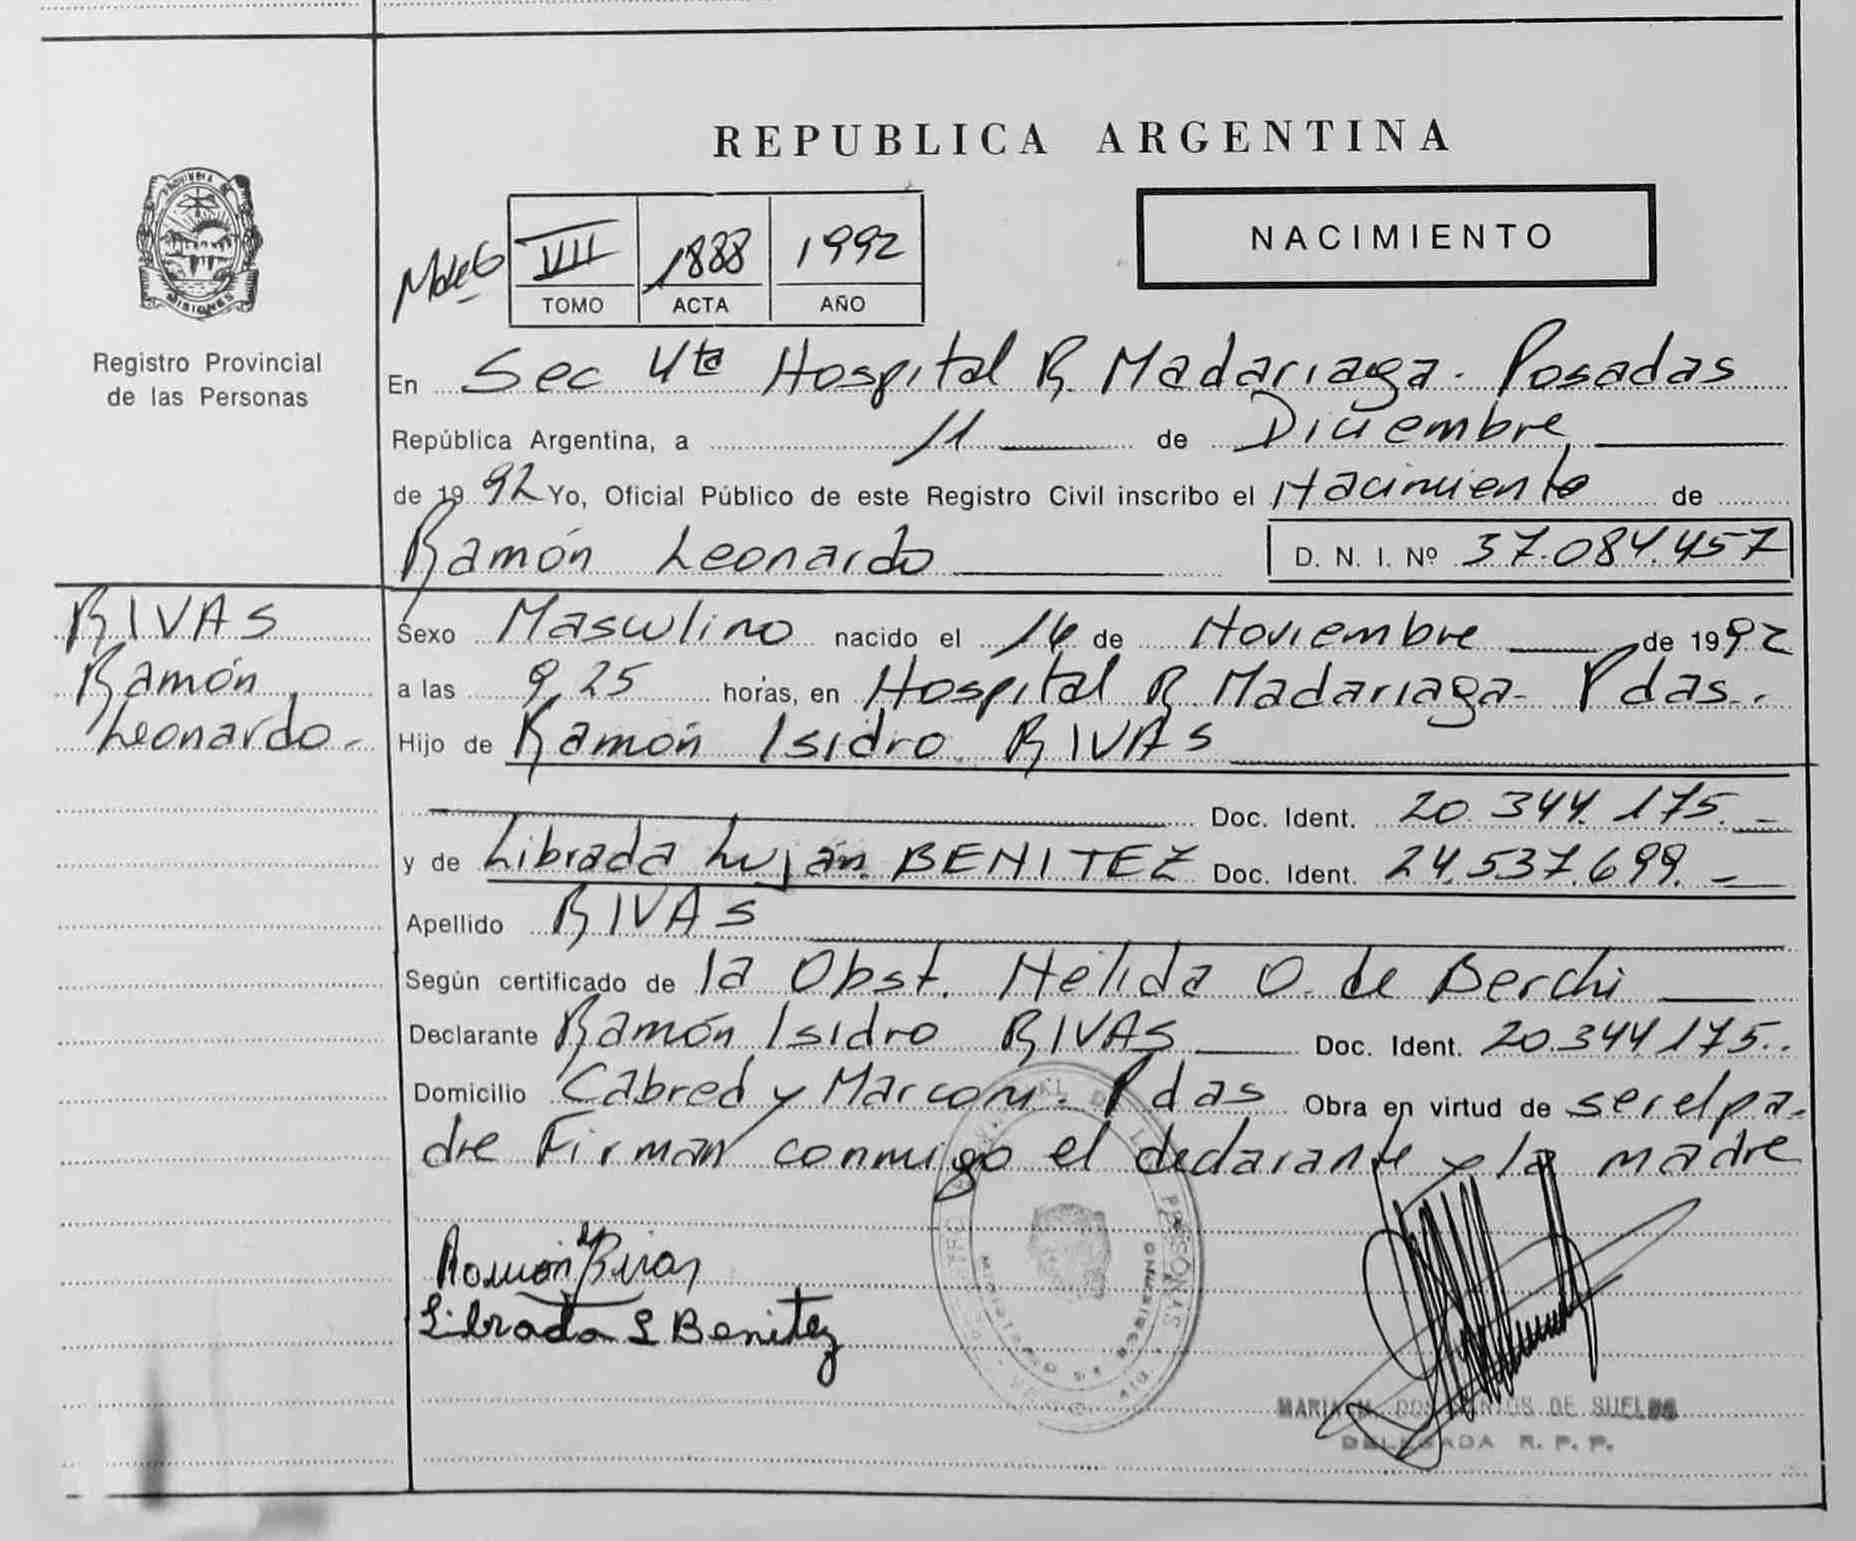 REPUBLICA ARGENTINA
PROVINCIA DE
MISIONES
Registro Provincial
de las Personas
NACIMIENTO
VII 1888 1992
TOMO ACTA AÑO
En Sec 4ta Hospital R. Madariaga. Posadas
República Argentina, a 11 de Diciembre
de 1992 Yo, Oficial Público de este Registro Civil inscribo el Nacimiento de
Ramón Leonardo D. N. I. Nº 37.084.457
RIVAS
Ramón
Leonardo.-
Sexo Masculino nacido el de Noviembre de 1992
a las 9,25 horas, en Hospital R. Madariaga- Pdas.
Hijo de Ramón Isidro RIVAS
Doc. Ident. 20.344.175.-
y de Librada Luján BENITEZ Doc. Ident. 24.537.699.-
Apellido RIVAS
Según certificado de la Obst. Nélida O. de Berchi
Declarante Ramón Isidro RIVAS Doc. Ident. 20.344.175.
Domicilio Cabred y Marconi. Pdas Obra en virtud de ser el pa-
dre Firman conmigo el declarante y la madre
Ramón Rivas
Librada L Benitez
MARIA DOS SANTOS DE SUELDO
DELEGADA R. P. P.